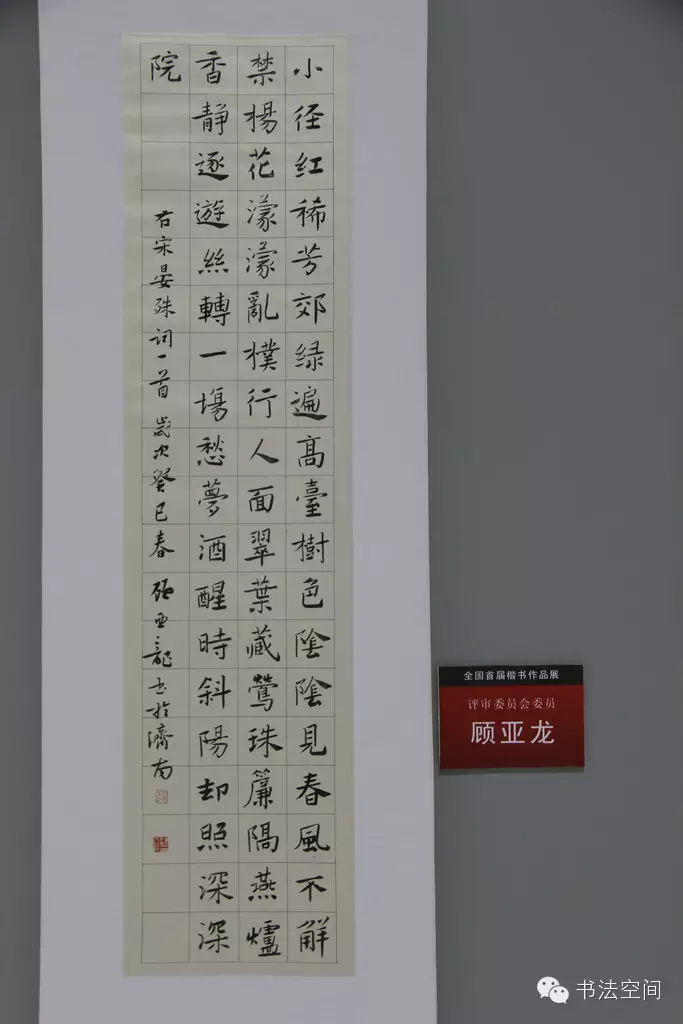 小径红稀芳郊绿遍高臺樹色陰陰見春風不解
禁楊花濛濛亂撲行人面翠葉藏鶯珠簾隔燕爐
香靜逐遊絲轉一場愁夢酒醒時斜陽却照深深
院
右宋晏殊词一首歲次癸巳春顾亚龍书於濟南
全国首届楷书作品展
评审委员会委员
顾亚龙
书法空间